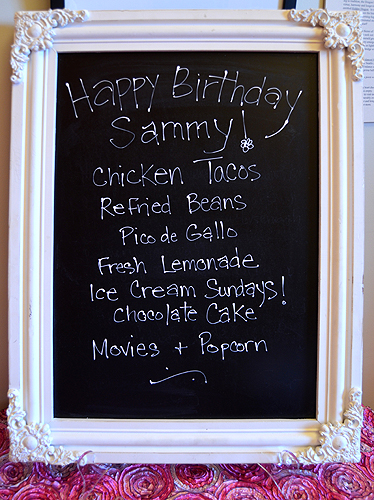 Happy Birthday
Sammy!
Chicken Tacos
Refried Beans
Pico de Gallo
Fresh Lemonade
Ice Cream Sundays!
Chocolate Cake
Movies + Popcorn